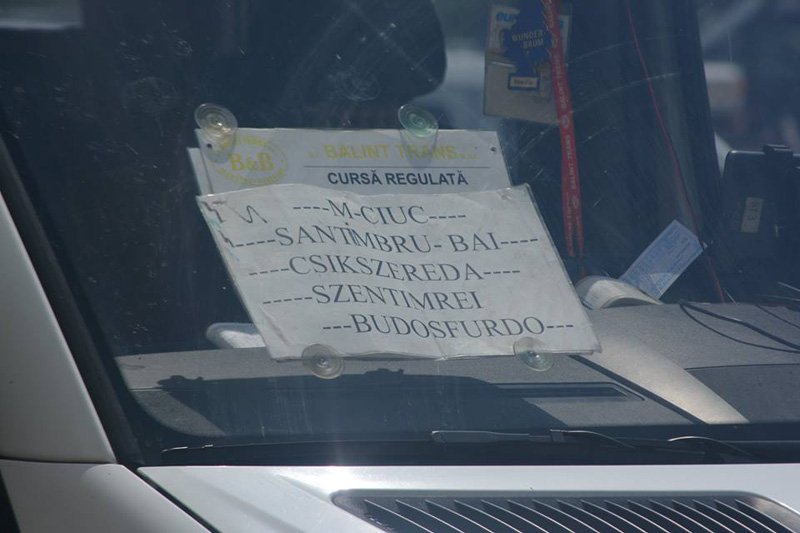 B&B
BALINT TRANS
CURSĂ REGULATĂ
----M-CIUC----
-----SANTIMBRU- BAI-----
----CSIKSZEREDA----
-----SZENTIMREI
---BUDOSFURDO---
WUNDER-
BAUM